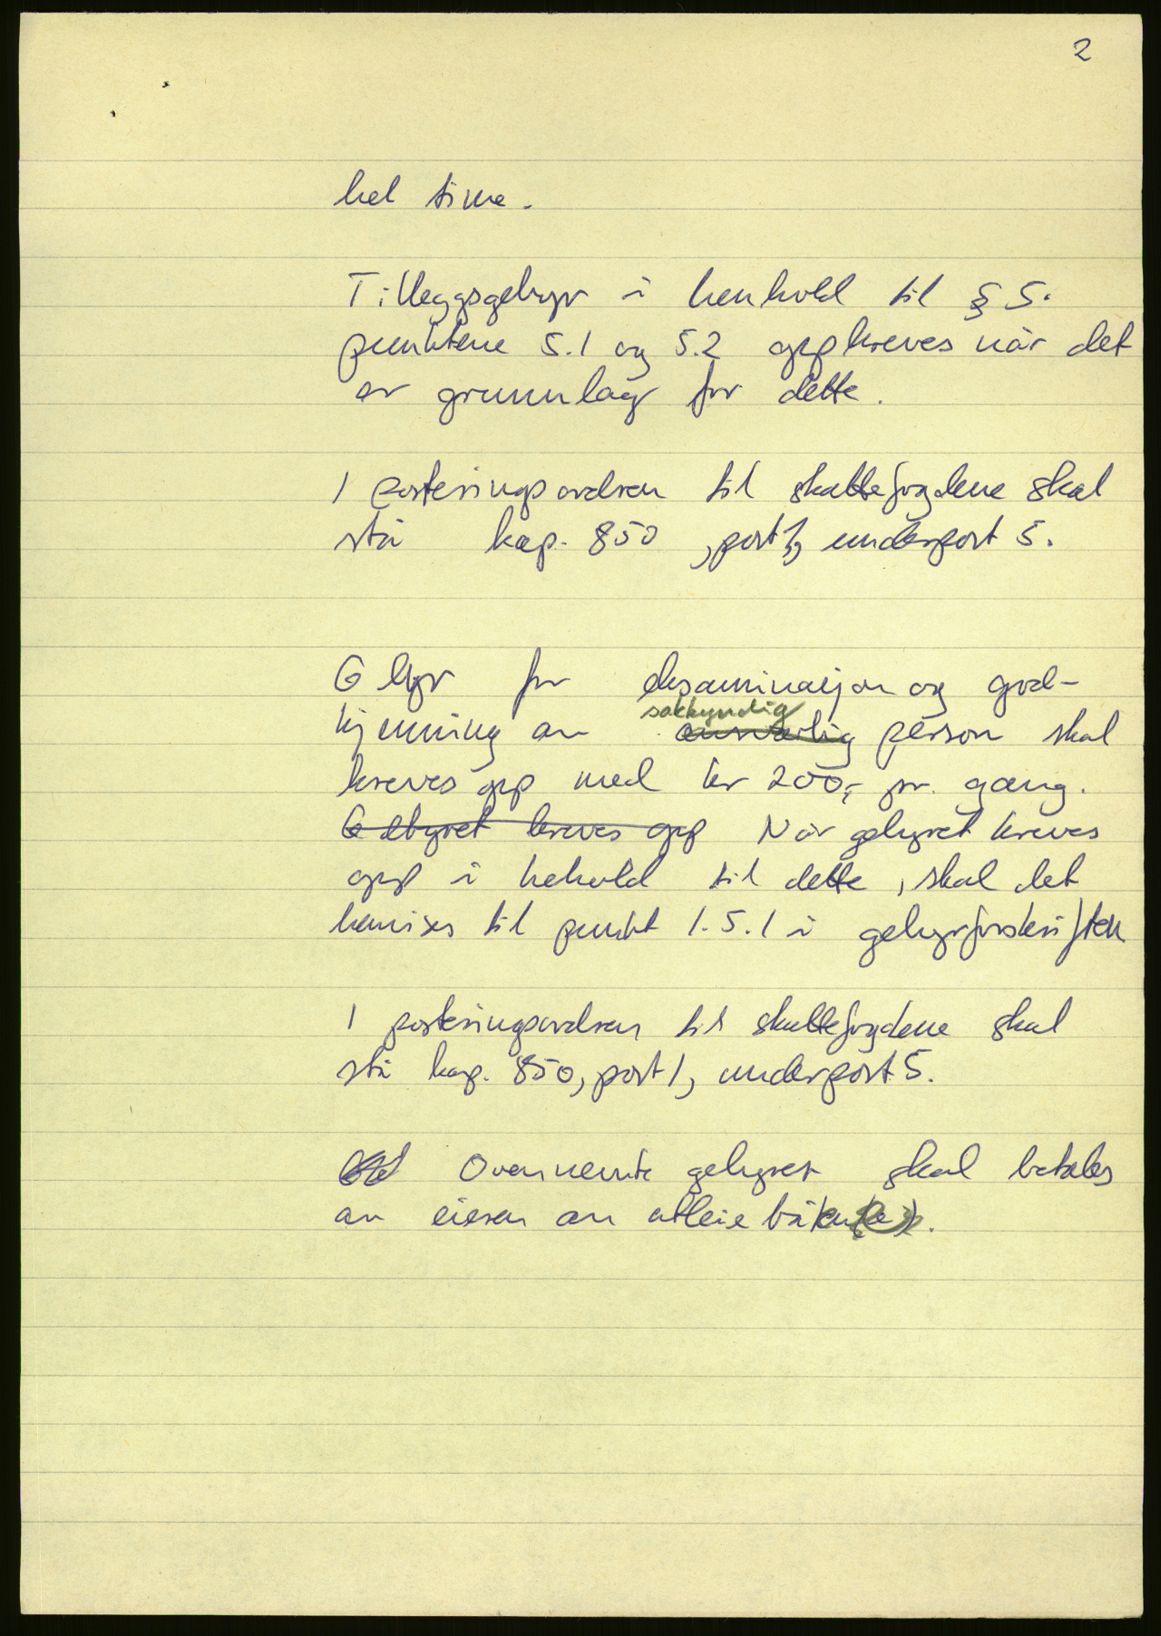 2
hel time.
Tilleggsgebyr i henhold til § 5.
punktene 5.1 og 5.2 oppkreves når det
er grunnlag for dette.
I posteringsordren til skattefogdene skal
stå kap. 850, post 1, underpost 5.
Gebyr for eksaminasjon og god-
sakkyndig
kjenning av ansvarlig person skal
kreves opp med kr 200,- pr. gang.
Gebyret kreves opp Når gebyret kreves
opp i hehold til dette, skal det
henvises til punkt 1.5.1 i gebyrforskriften
I posteringsordren til skattefogdene skal
stå kap. 850, post 1, underpost 5.
Ovennevnte gebyrer skal betales
av eieren av utleie båten(e).